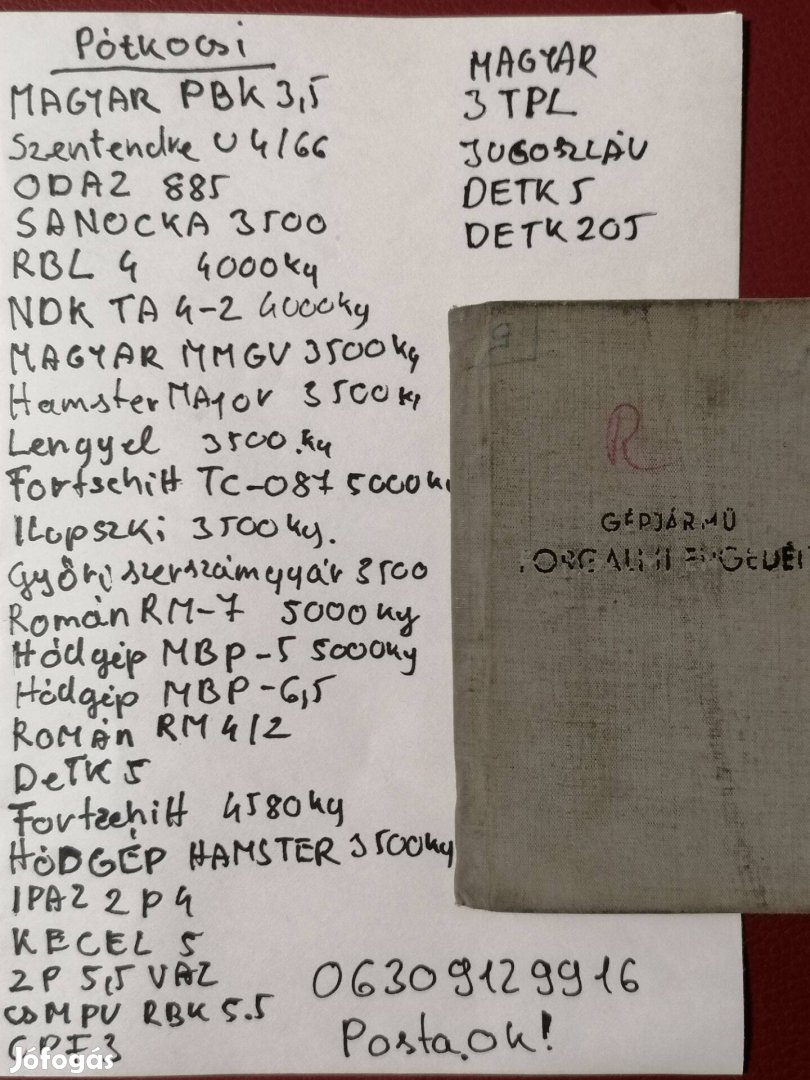 Pótkocsi
MAGYAR PBK 3,5
Szentendre U 4/66
ODAZ 885
SANOCKA 3500
RBL 4 4000kg
NDK TA 4-2 4000kg
MAGYAR MMGV 3500kg
Hamster MAjor 3500k
Lengyel 3500.kg
Fortschitt TC-087 5000k
ILopszki 3500kg.
Győri szerszámgyár 3500
Román RM-7 5000kg
Hódgép MBP-5 5000kg
Hódgép MBP-6,5
ROMÁn RM 4/2
DeTK 5
Fortschitt 4580kg
HÓDGÉP HAMSTER 3500kg
IPAZ 2 P 4
KECEL 5
2P 5,5 VAZ
RBK 5.5
MAGYAR
3 TPL
JUGOSZLÁV
DETK 5
DETK 205
R
GÉPJÁRMŰ
FORGALMI ENGEDÉLY
06309129916
Posta.ok!
Jófogás